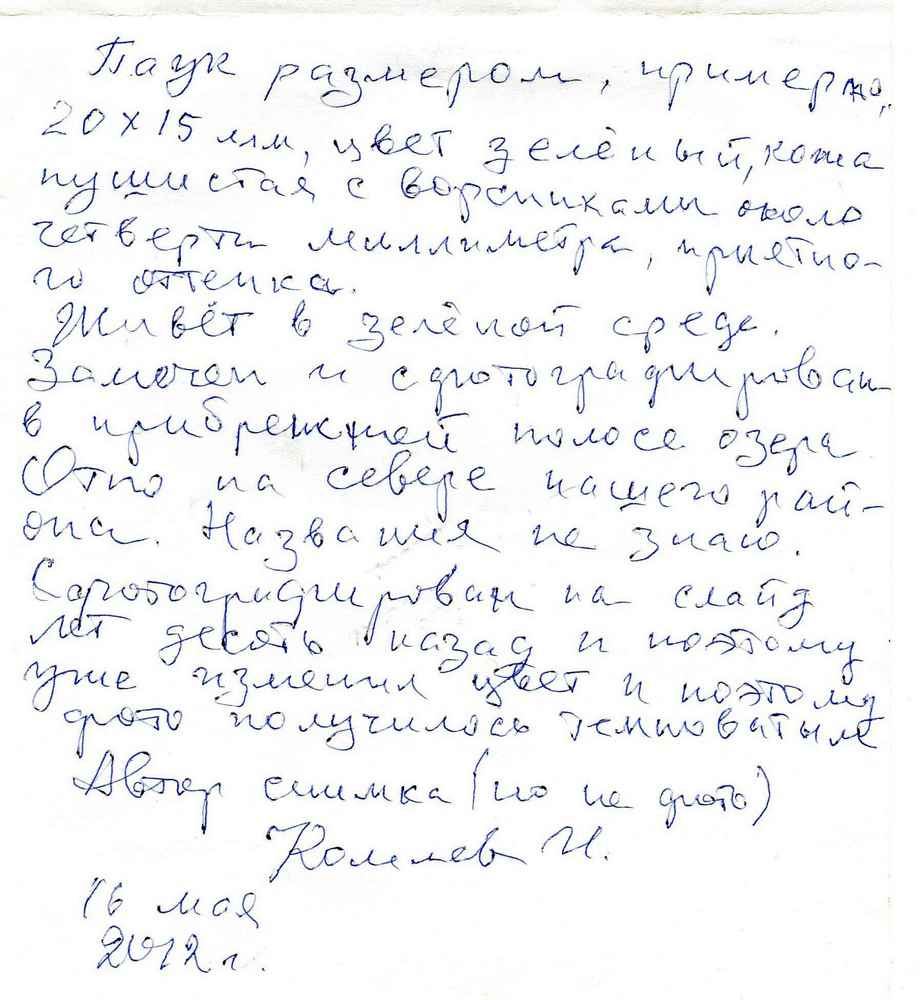 Паук размером, примерно,
20 х 15 мм, цвет зелёный, кожа
пушистая с ворсинками около
четверти миллиметра, приятно-
го оттенка.
Живёт в зелёной среде.
Замечен и сфотографирован
в прибрежной полосе озера
Отно на севере нашего рай-
она. Названия не знаю.
Сфотографирован на слайд
лет десять назад и поэтому
уже изменил цвет и поэтому
фото получилось темноватым
Автор снимка (но не фото)
И.
16 мая
2012 г.